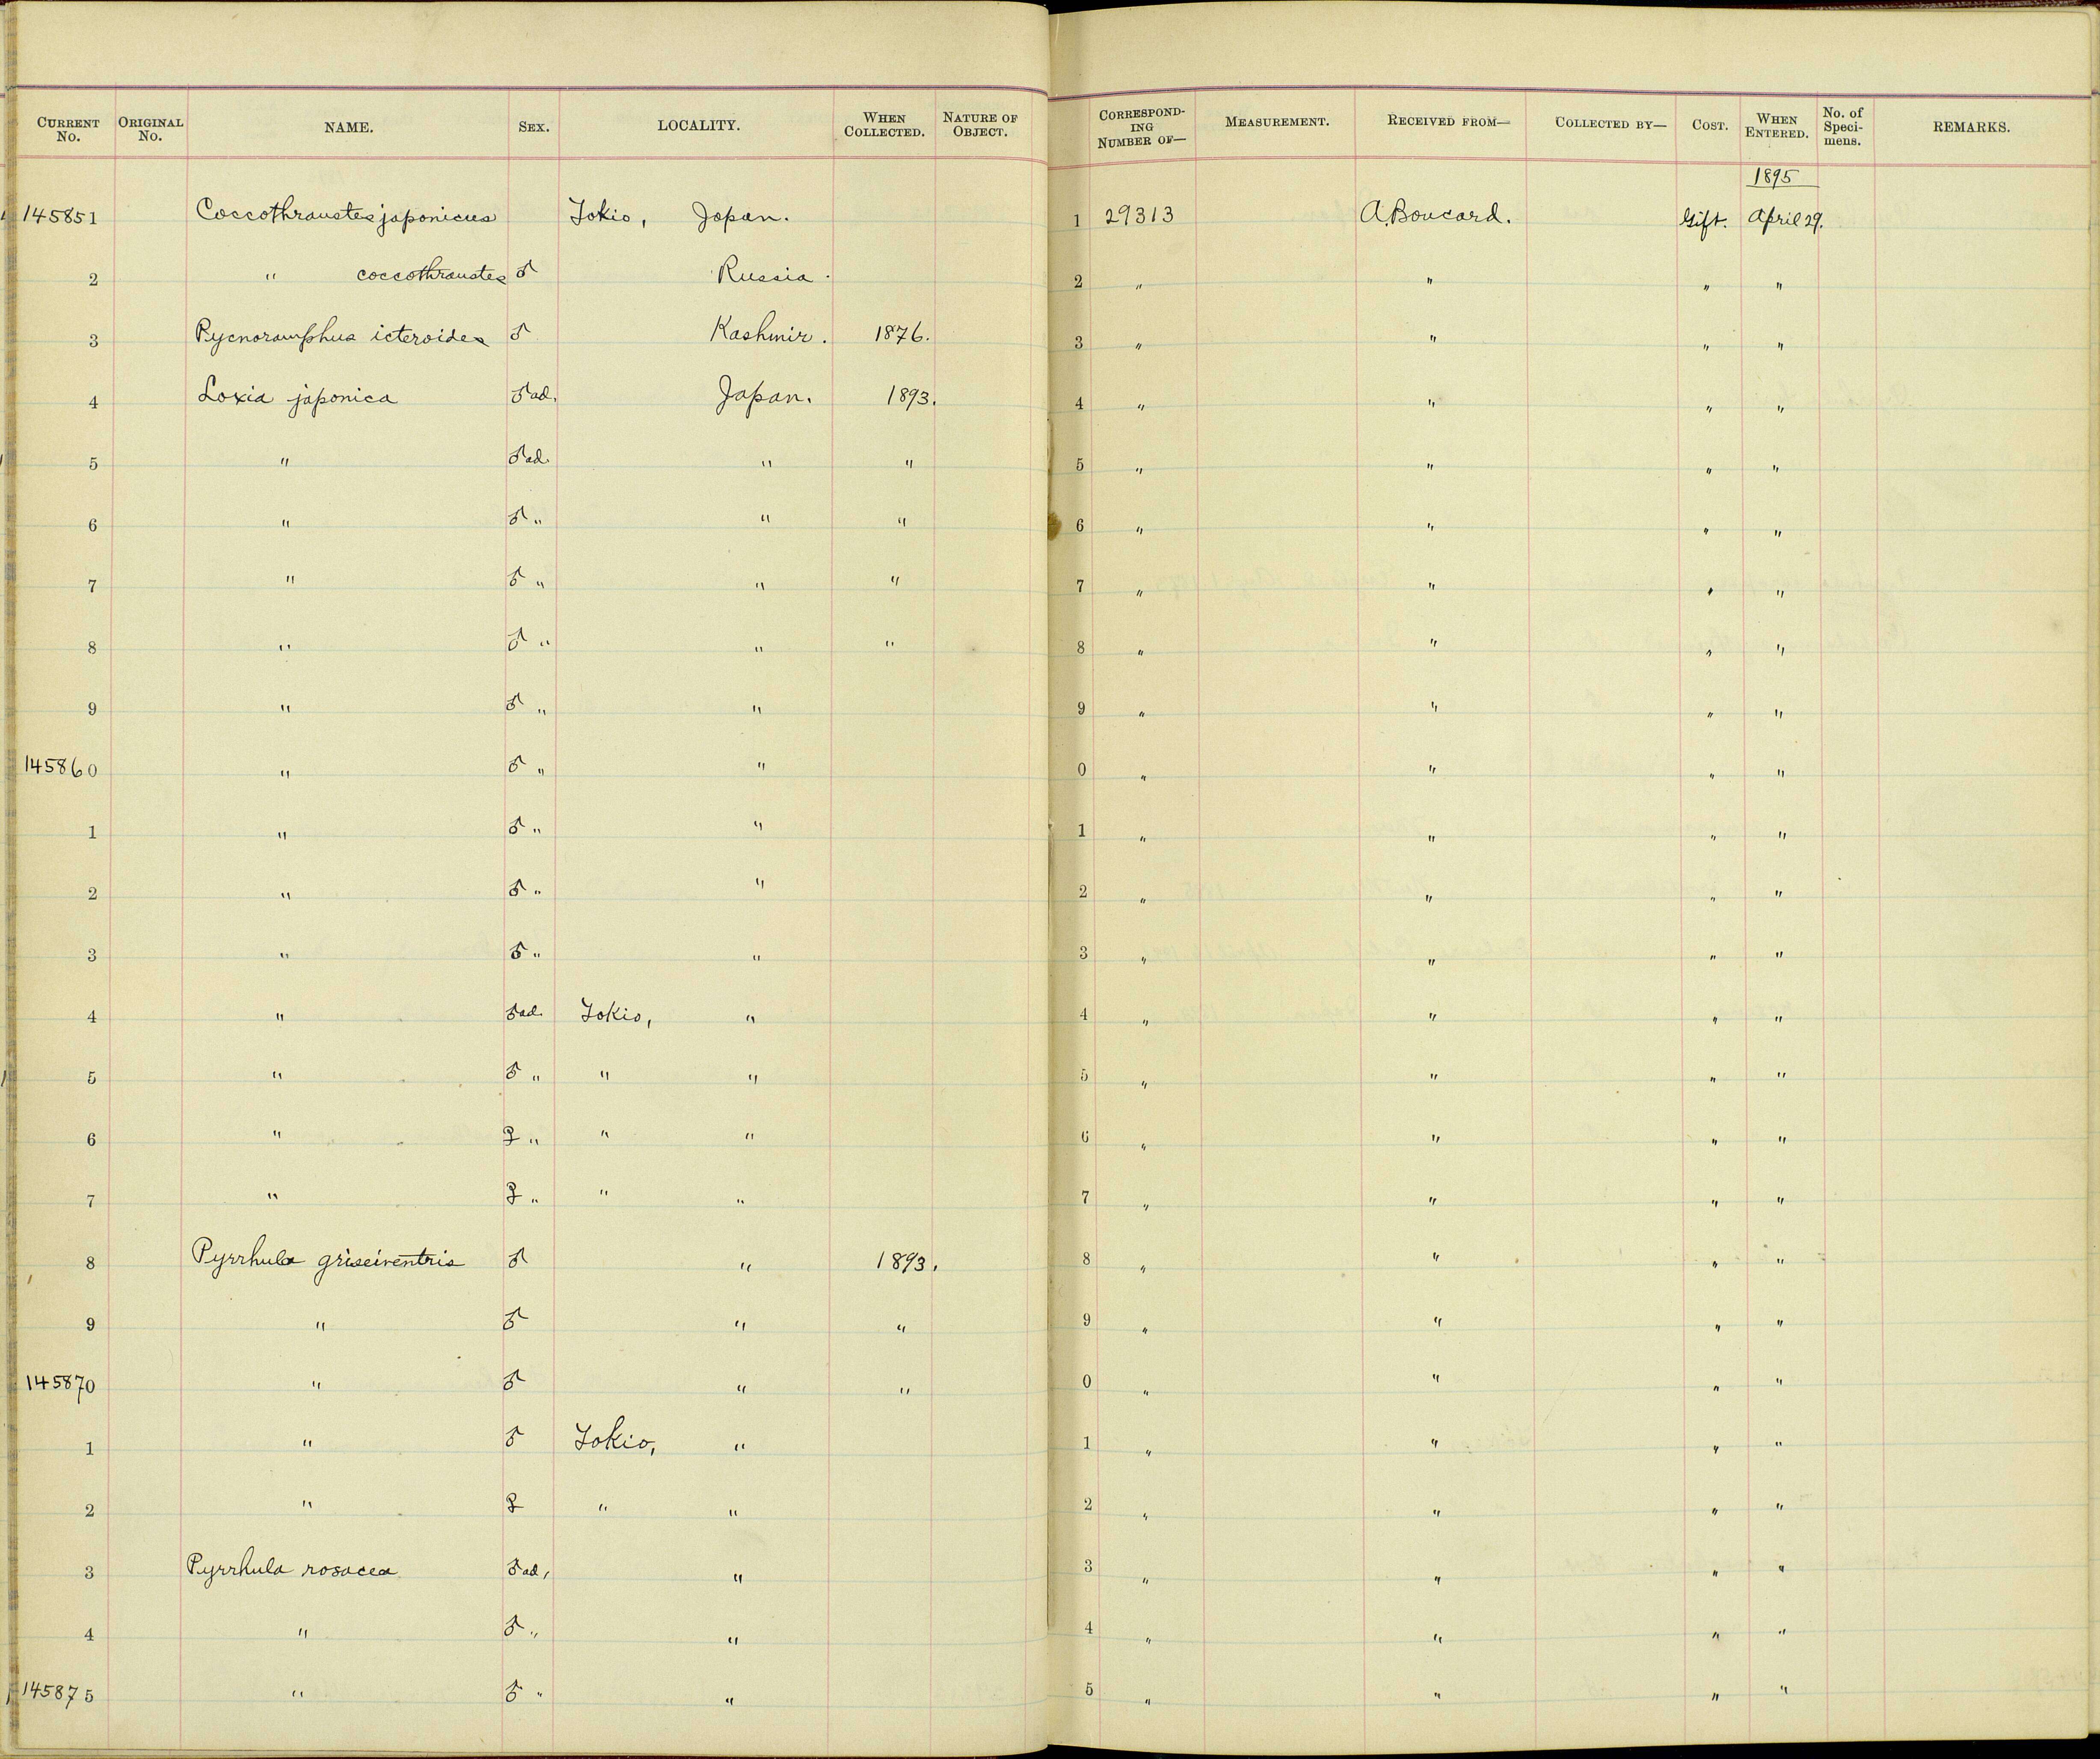 CURRENT No. ORIGINAL No. NAME. SEX. LOCALITY. WHEN COLLECTED. NATURE OF OBJECT. CORRESPONDING NUMBER OF— MEASUREMENT. RECEIVED FROM— COLLECTED BY— COST. WHEN ENTERED. No. of Specimens. REMARKS.
1895
145851 Coccothraustes japonicus Tokio, Japan. 1 29313 A. Boucard. Gift. April 29.
2 " coccothraustes ♂ Russia. 2 " " " "
3 Pycnoramphus icteroides ♂ Kashmir. 1876. 3 " " " "
4 Loxia japonica ♂ ad. Japan. 1893. 4 " " " "
5 " ♂ ad. " " 5 " " " "
6 " ♂ " " " 6 " " " "
7 " ♂ " " " 7 " " " "
8 " ♂ " " " 8 " " " "
9 " ♂ " " 9 " " " "
145860 " ♂ " " 0 " " " "
1 " ♂ " " 1 " " " "
2 " ♂ " " 2 " " " "
3 " ♂ " " 3 " " " "
4 " ♂ ad. Tokio, " 4 " " " "
5 " ♂ " " " 5 " " " "
6 " ♀ " " " 6 " " " "
7 " ♀ " " " 7 " " " "
8 Pyrrhula griseiventris ♂ " 1893. 8 " " " "
9 " ♂ " " 9 " " " "
145870 " ♂ " " 0 " " " "
1 " ♂ Tokio, " 1 " " " "
2 " ♀ " " 2 " " " "
3 Pyrrhula rosacea ♂ ad, " 3 " " " "
4 " ♂ " " 4 " " " "
145875 " ♂ " " 5 " " " "